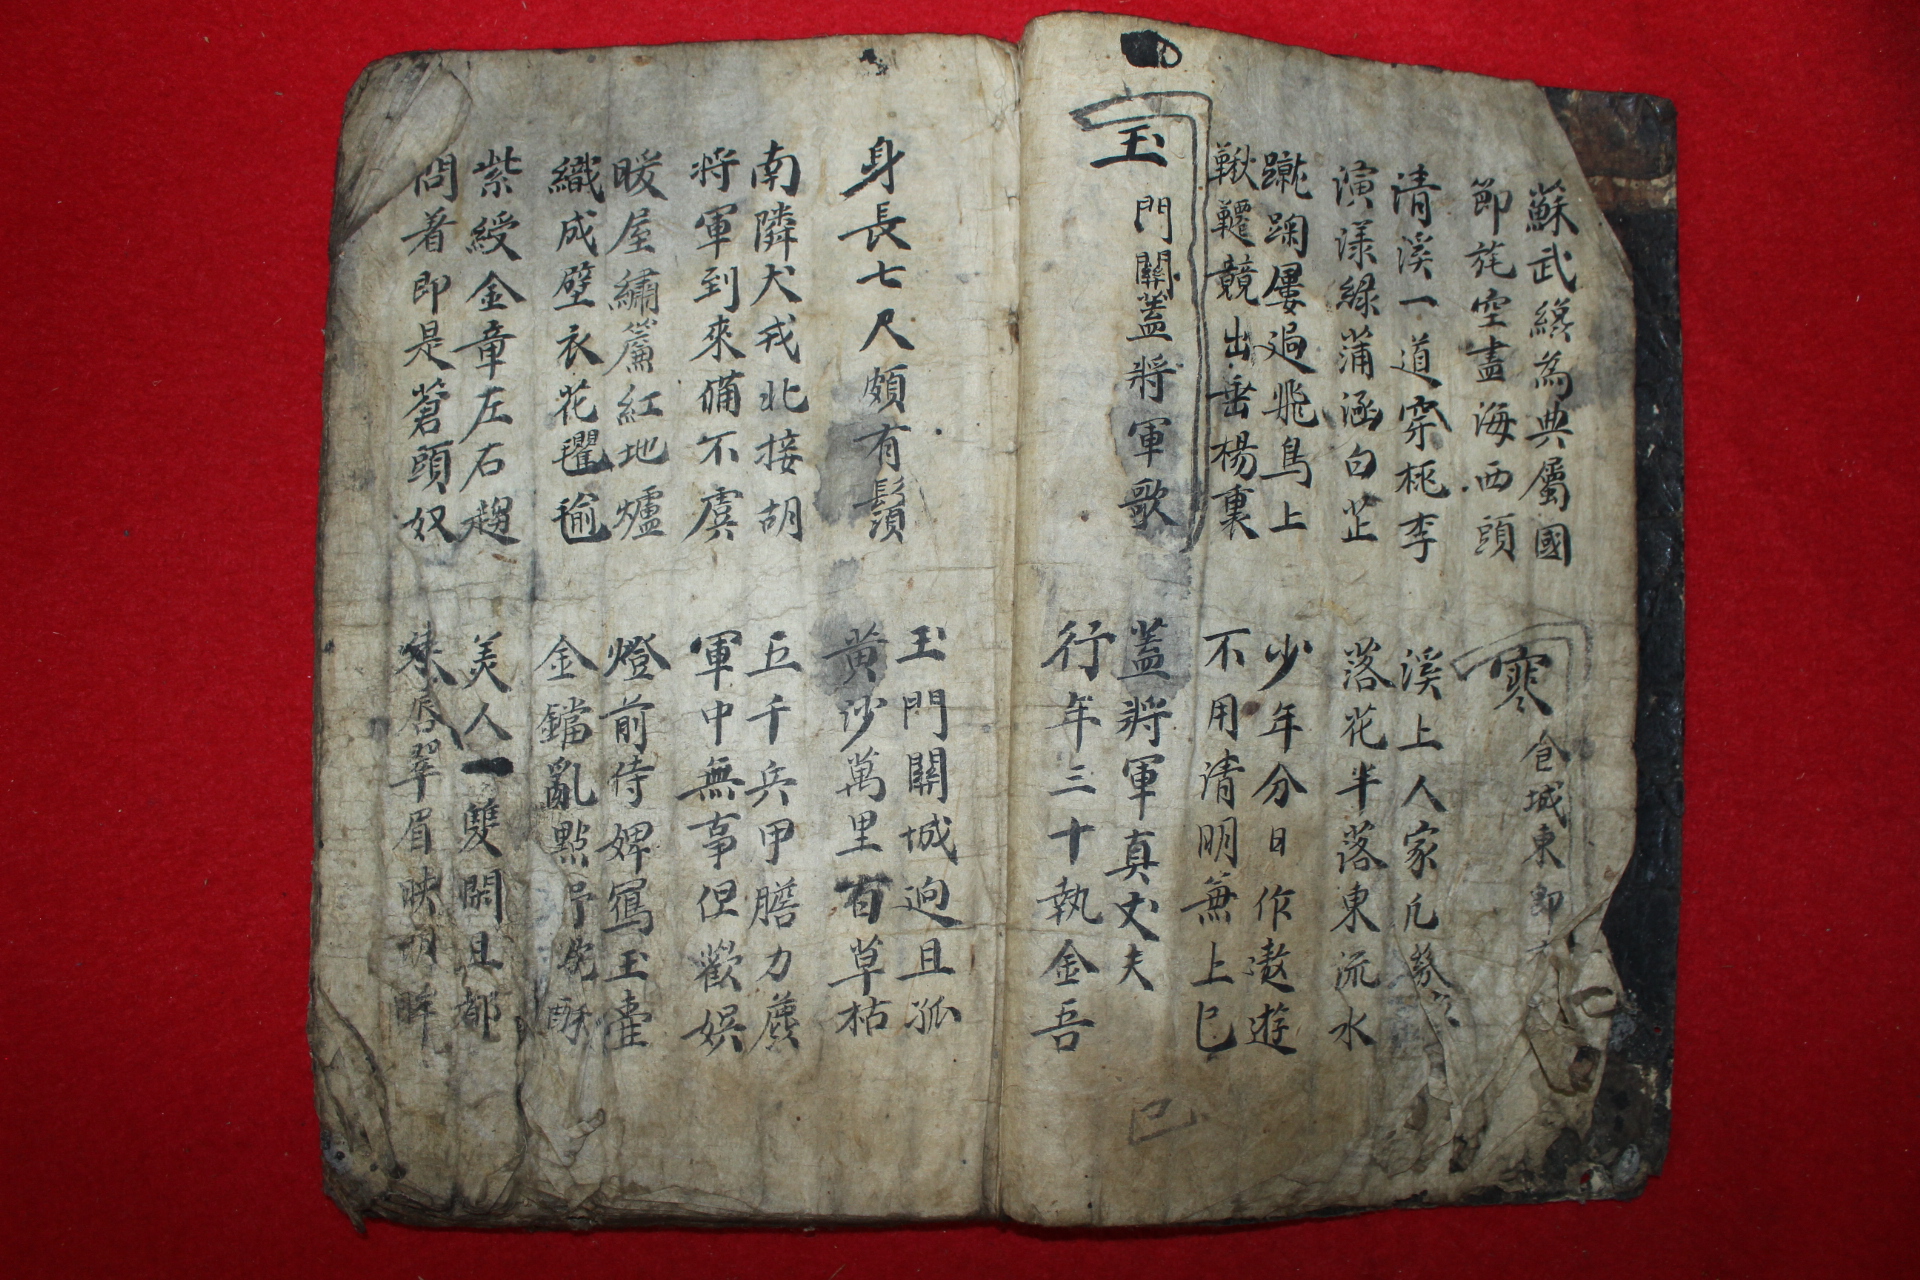 蘇武終為典屬國
節旄空盡海西頭
寒食城東即事
清溪一道穿桃李
演漾綠蒲涵白芷
溪上人家凡幾家
落花半落東流水
蹴踘屢過飛鳥上
鞦韆競出垂楊裏
少年分日作遨遊
不用清明兼上巳
玉門關蓋將軍歌
蓋將軍真丈夫
行年三十執金吾
已
身長七尺頗有鬚
玉門關城迥且孤
黃沙萬里百草枯
南隣犬戎北接胡
將軍到來備不虞
五千兵甲膽力麄
軍中無事但歡娛
暖屋繡簾紅地爐
織成壁衣花氍毹
燈前侍婢瀉玉壺
金鐺亂點野駝酥
紫綬金章左石趨
問着即是蒼頭奴
美人一雙閑且都
朱唇翠眉映明眸